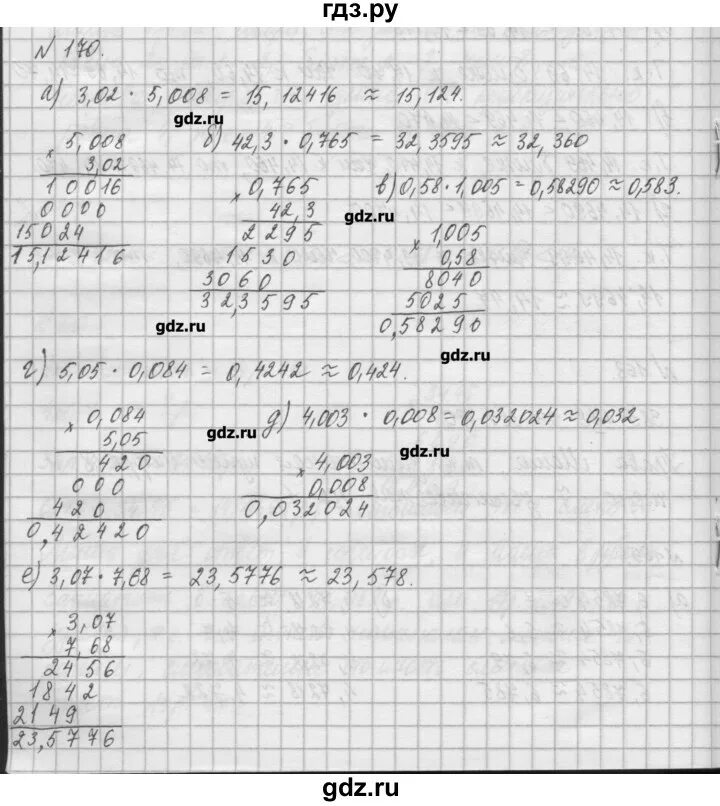 гдз.ру
№ 170.
а) 3,02 · 5,008 = 15,12416 ≈ 15,124.
gdz.ru
× 5,008
3,02
10016
0000
15024
15,12416
б) 42,3 · 0,765 = 32,3595 ≈ 32,360
× 0,765
42,3
2295
1530
3060
32,3595
gdz.ru
в) 0,58 · 1,005 = 0,58290 ≈ 0,583.
gdz.ru
× 1,005
0,58
8040
5025
0,58290
gdz.ru
г) 5,05 · 0,084 = 0,4242 ≈ 0,424.
× 0,084
5,05
420
000
420
0,42420
gdz.ru
д) 4,003 · 0,008 = 0,032024 ≈ 0,032
gdz.ru
× 4,003
0,008
0,032024
е) 3,07 · 7,68 = 23,5776 ≈ 23,578.
× 3,07
7,68
2456
1842
2149
23,5776
gdz.ru